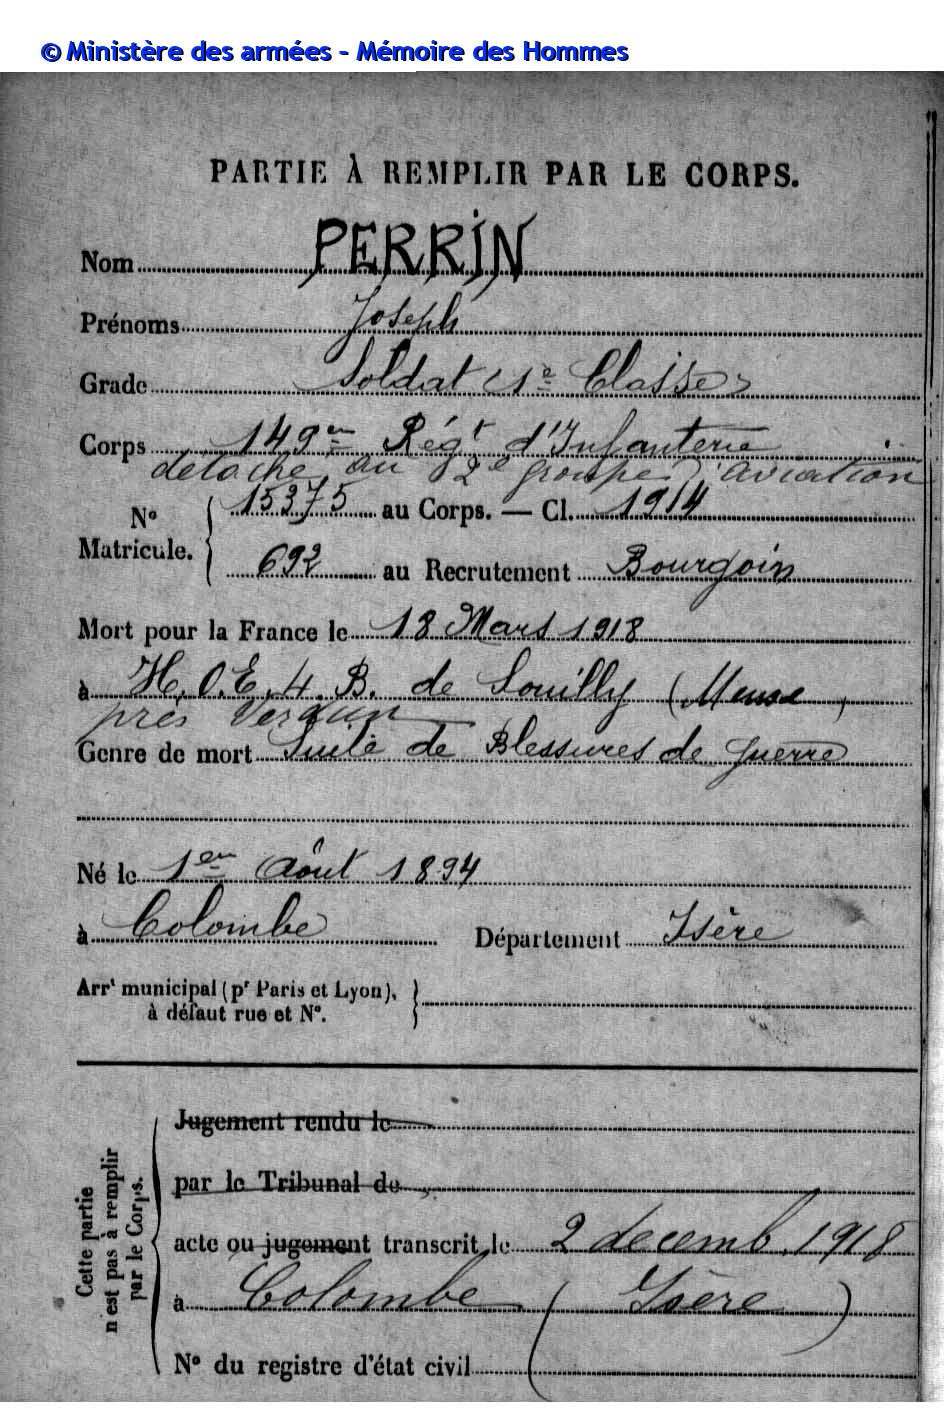 © Ministère des armées - Mémoire des Hommes
PARTIE À REMPLIR PAR LE CORPS.
Nom PERRIN
Prénoms Joseph
Grade Soldat (1e Classe)
Corps 149en Régt d'Infanterie
détaché au 2e groupe d'aviation
No Matricule. { 15375 au Corps. — Cl. 1914
692 au Recrutement Bourgoin
Mort pour la France le 18 Mars 1918
à H.O.E. 4. B. de Souilly (Meuse)
près Verdun
Genre de mort Suite de Blessures de guerre
Né le 1er Août 1894
à Colombe Département Isère
Arrt municipal (pr Paris et Lyon), }
à défaut rue et No.
Cette partie
n'est pas à remplir
par le Corps.
Jugement rendu le
par le Tribunal de
acte ou jugement transcrit le 2 decemb. 1918
à Colombe (Isère)
No du registre d'état civil